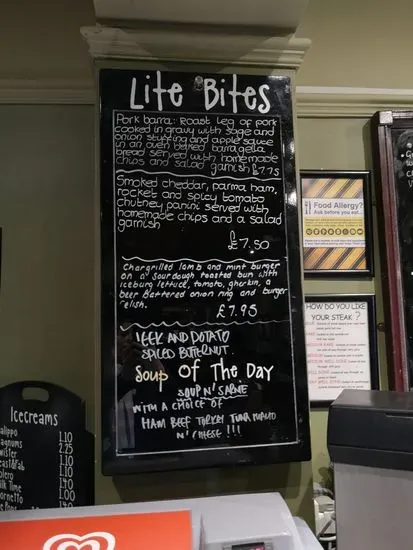 Lite Bites
Pork barra:- Roast leg of pork
cooked in gravy with sage and
onion stuffing and apple sauce
in an oven baked barra gella
bread served with homemade
chips and salad garnish £7.75
Smoked cheddar, parma ham,
rocket and spicy tomato
chutney panini served with
homemade chips and a salad
garnish
£7.50
Chargrilled lamb and mint burger
on a sourdough toasted bun with
iceburg lettuce, tomato, gherkin, a
beer battered onion ring and burger
relish.
£7.95
LEEK AND POTATO
SPICED BUTTERNUT
Soup Of The Day
SOUP N' SARNIE
WITH A CHOICE OF
HAM BEEF TURKEY TUNA MAYO
N' CHEESE !!!
Food Allergy?
Ask before you eat...
HOW DO YOU LIKE
YOUR STEAK?
Icecreams
1.10
2.25
1.10
1.10
1.10
1.40
1.00
1.40